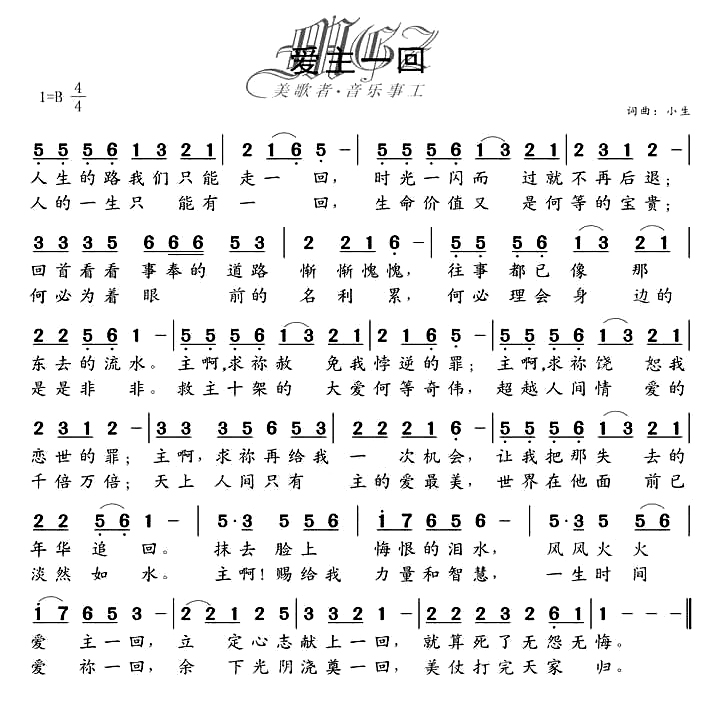 MGZ
爱主一回
美歌者·音乐事工
1=B 4/4
词曲：小生
5 5 5 6 1 3 2 1 | 2 1 6 5 - | 5 5 5 6 1 3 2 1 | 2 3 1 2 - |
人生的路我们只能 走一 回， 时光一闪而 过就不再后退；
人的一生只 能有一 回， 生命价值又 是何等的宝贵；
3 3 3 5 6 6 6 5 3 | 2 2 1 6 - | 5 5 5 6 1 3 2 1 |
回首看看 事奉的 道路 惭 惭愧愧， 往事都已像 那
何必为着眼 前的 名利 累， 何必理会身 边的
2 2 5 6 1 - | 5 5 5 6 1 3 2 1 | 2 3 1 2 - | 5 5 5 6 1 3 2 1 |
东去的流水。主啊,求祢赦 免我悖逆的罪；主啊,求祢饶 恕我
是是非 非。救主十架的 大爱何等奇伟，超越人间情 爱的
2 3 1 2 - | 3 3 3 5 6 5 5 3 | 2 2 1 6 - | 5 5 5 6 1 3 2 1 |
恋世的罪；主啊,求祢再给我 一 次机会，让我把那失 去的
千倍万倍；天上 人间只有 主的爱最美，世界在他面 前已
2 2 5 6 1 - | 5·3 5·3 | i 7 6 5 6 - | 5·3 5 6 |
年华 追 回。 抹去 脸上 悔恨的泪水， 风风火火
淡然 如 水。 主啊！赐给我 力量和智慧， 一生时间
i 7 6 5 3 - | 2 2 1 2 5 | 3 3 2 1 - | 2 2 2 6 1 2 1 - ‖
爱 主一回， 立 定心志献上一回，就算死了无怨无悔。
爱 祢一回， 余 下光阴浇奠一回，美仗打完天家 归。